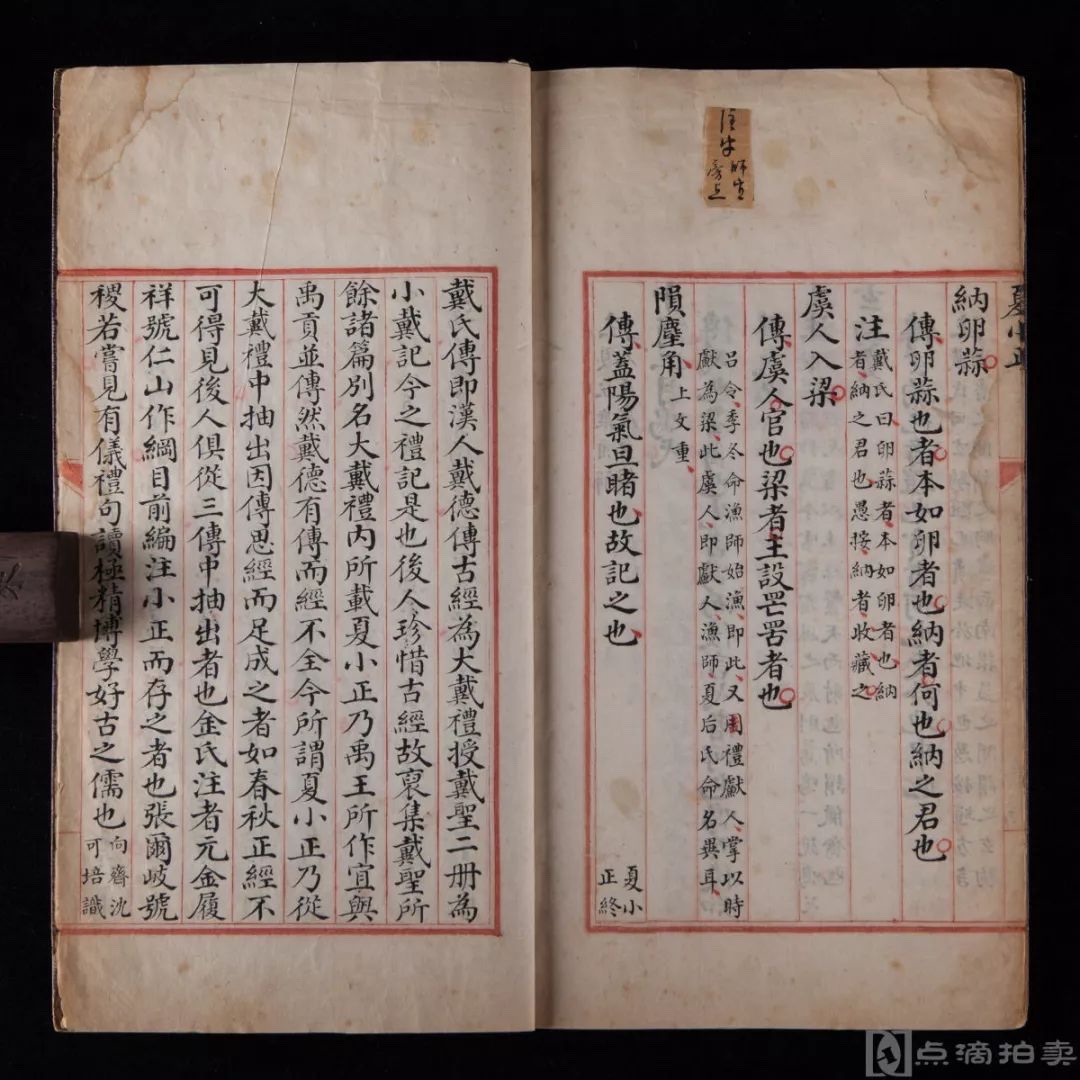 夏小正
納卵蒜
傳卵蒜也者本如卵者也納者何也納之君也
注戴氏曰卵蒜者本如卵者也納
者納之君也愚按納者收藏之
虞人入梁
傳虞人官也梁者主設罜罟者也
呂令季冬命漁師始漁即此又周禮獻人掌以時
獻為梁此虞人即獻人漁師夏后氏命名異耳
隕麈角上文重
傳蓋陽氣旦睹也故記之也
夏小
正終
戴氏傳即漢人戴德傳古經為大戴禮授戴聖二册為
小戴記今之禮記是也後人珍惜古經故裒集戴聖所
餘諸篇別名大戴禮內所載夏小正乃禹王所作宜與
禹貢並傳然戴德有傳而經不全今所謂夏小正乃從
大戴禮中抽出因傳思經而足成之者如春秋正經不
可得見後人俱從三傳中抽出者也金氏注者元金履
祥號仁山作綱目前編注小正而存之者也張爾岐號
稷若嘗見有儀禮句讀極精博學好古之儒也
向齋沈
可培識
点滴拍卖